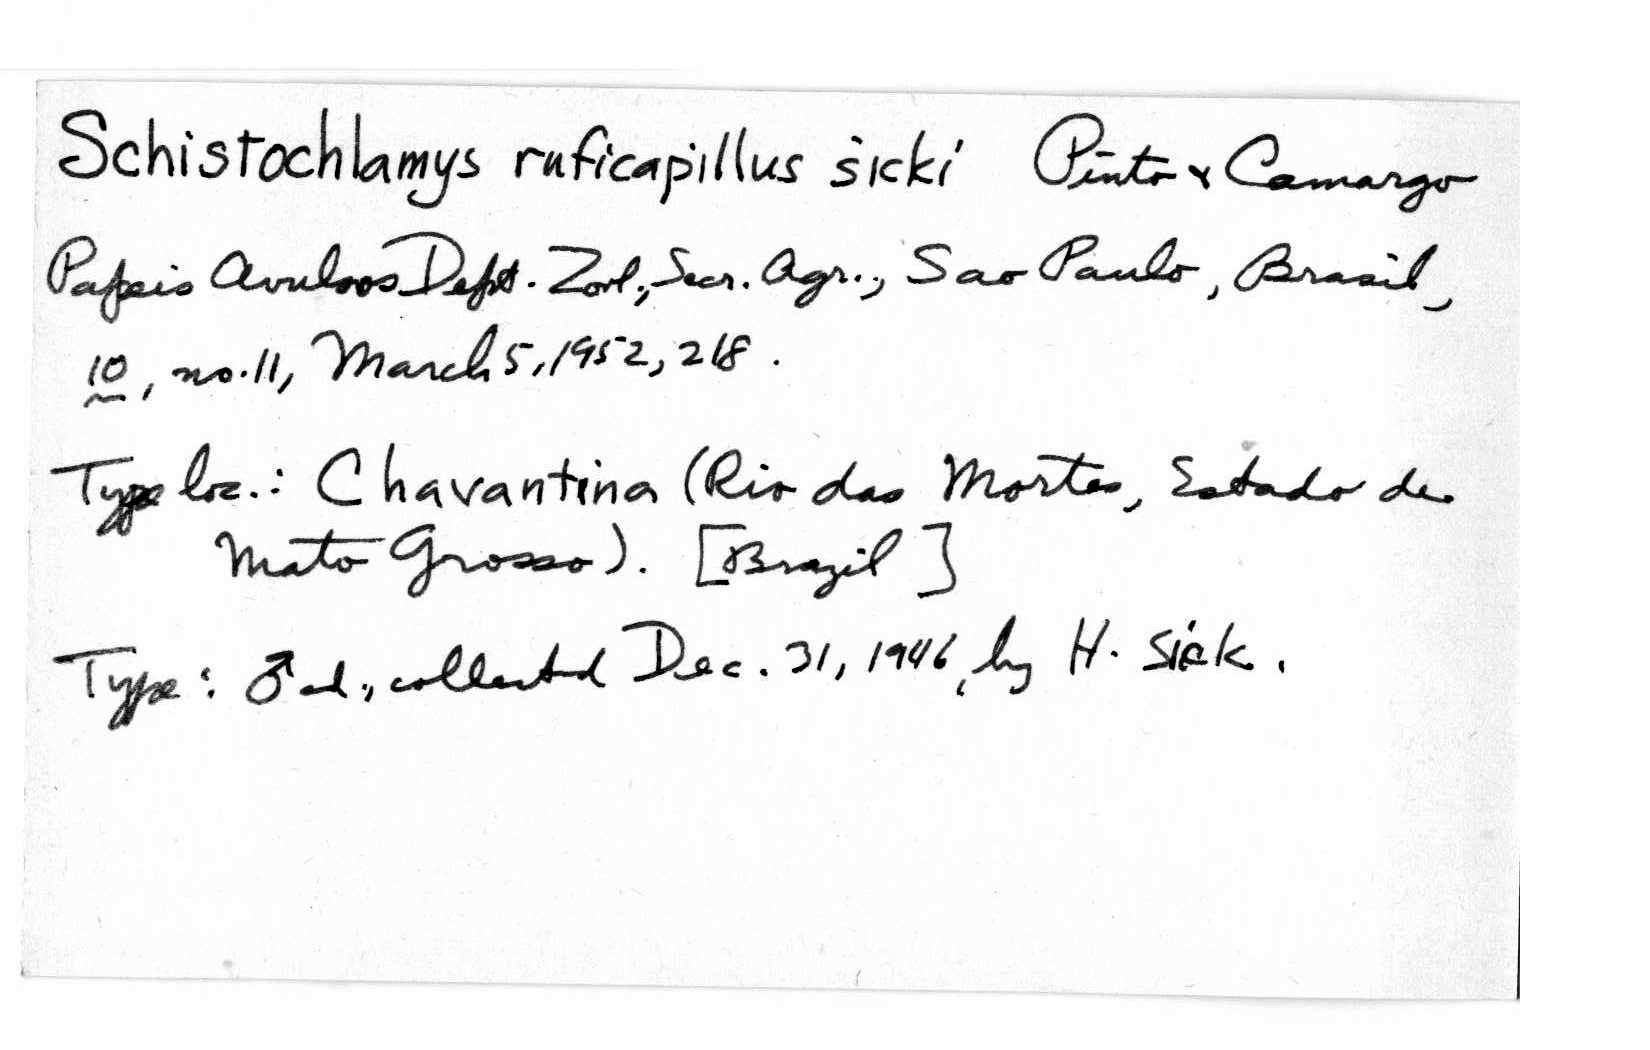 Schistochlamys ruficapillus sicki Pinto & Camargo
Papeis Avulsos Dept. Zool., Secr. Agr., Sao Paulo, Brasil,
10, no. 11, March 5, 1952, 218.
Type loc.: Chavantina (Rio das Mortes, Estado de
Mato Grosso). [Brazil]
Type: ♂ ad., collected Dec. 31, 1946, by H. Sick.